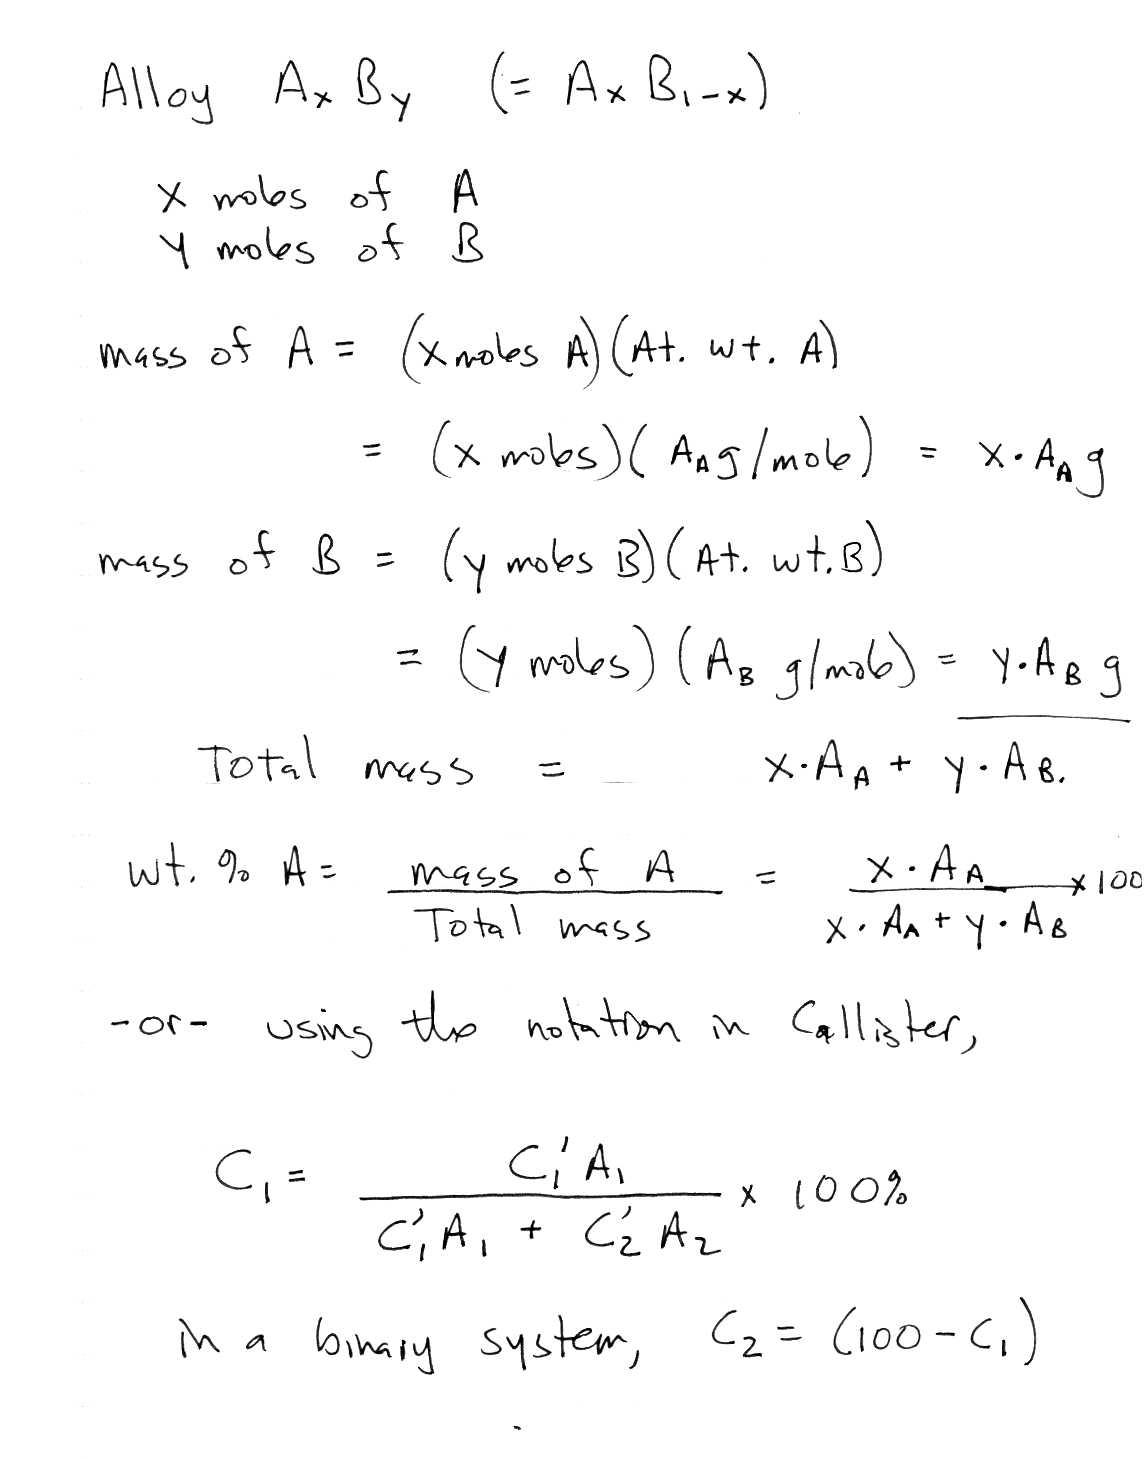 Alloy AxBy (= AxB1-x)
x moles of A
y moles of B
mass of A = (x moles A)(At. wt. A)
= (x moles)(A_A g/mole) = x·A_A g
mass of B = (y moles B)(At. wt. B)
= (y moles)(A_B g/mole) = y·A_B g
Total mass = x·A_A + y·A_B.
wt. % A = mass of A / Total mass = x·A_A / x·A_A + y·A_B x 100
-or- using the notation in Callister,
C1 = C1' A1 / C1' A1 + C2' A2 x 100%
in a binary system, C2 = (100 - C1)